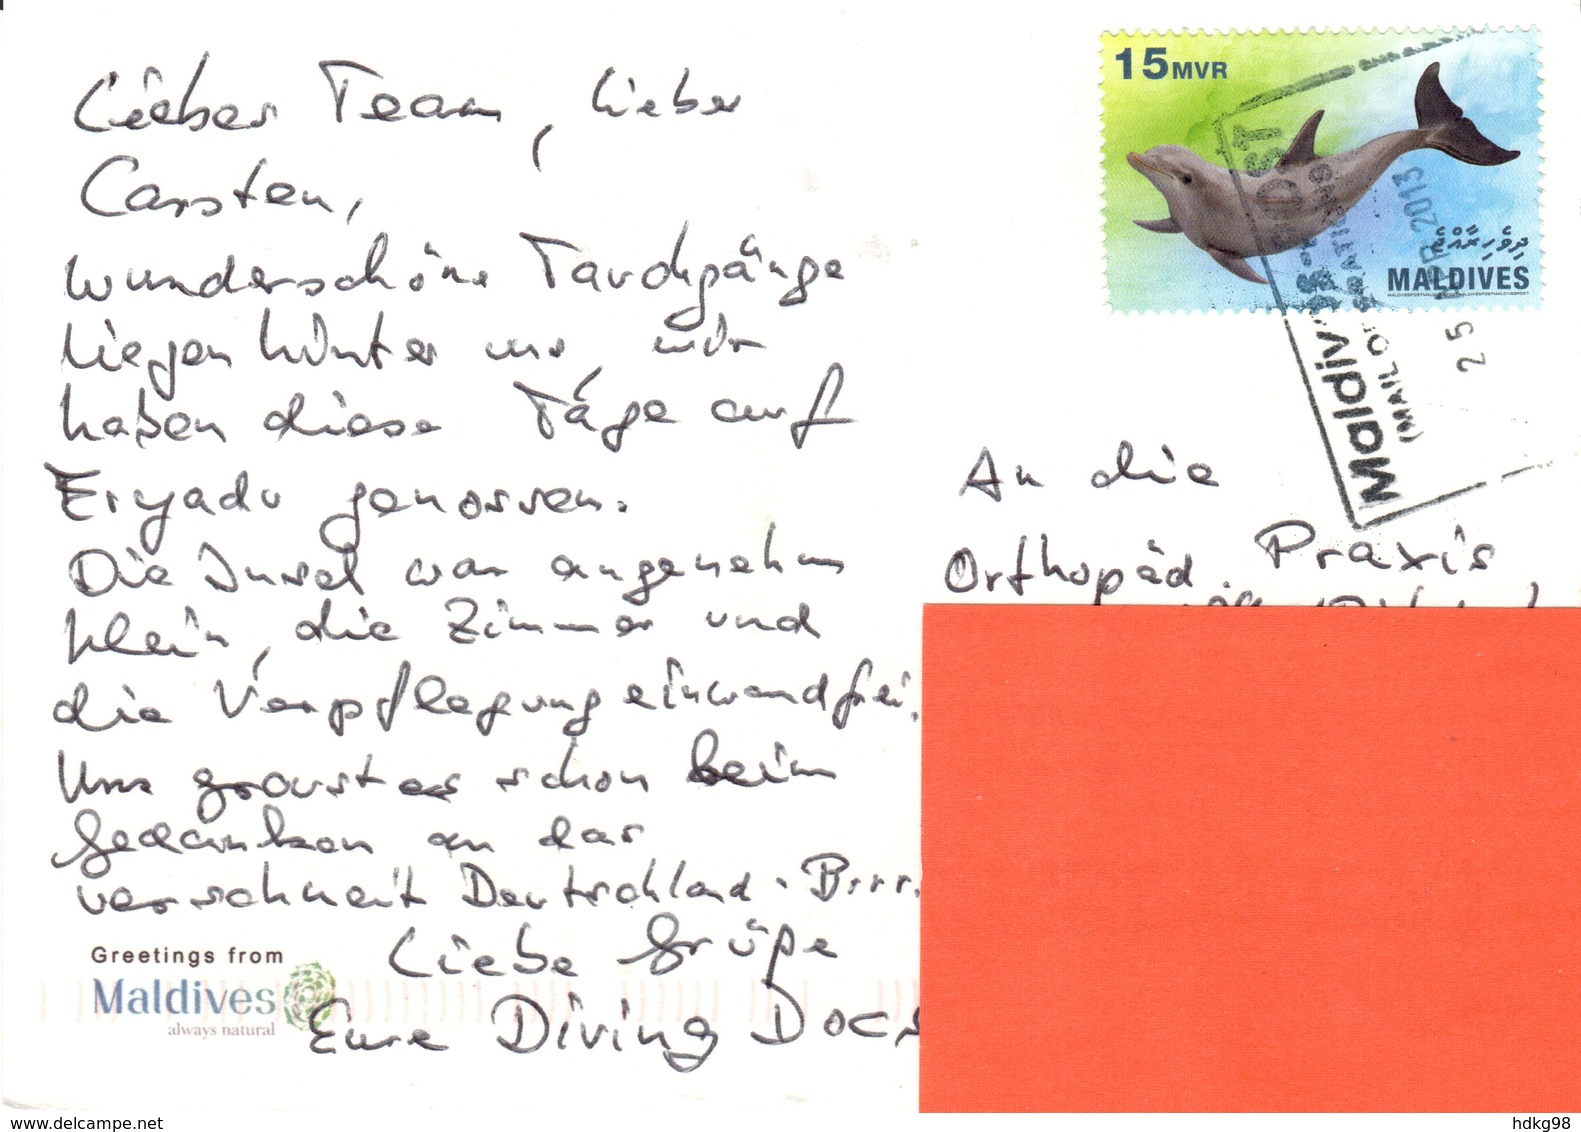 Lieber Team, lieber
Carsten,
wunderschöne Tauchgänge
liegen hinter uns, wir
haben diese Tage auf
Eryadu genossen.
Die Insel war angenehm
klein, die Zimmer und
die Verpflegung einwandfrei.
Uns graust es schon beim
Gedanken an das
verschneit Deutschland. Brrr.
Liebe Grüße
Eure Diving Docs
Greetings from
Maldives
always natural
15 MVR
ދިވެހިރާއްޖެ
MALDIVES
Maldives Post
(MAIL O
25 2013
An die
Orthopäd. Praxis
www.delcampe.net
hdkg98